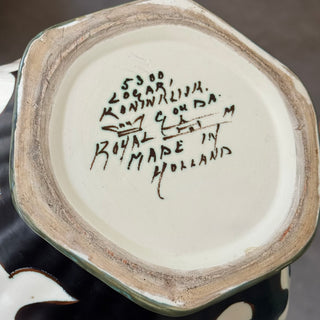 5300
LOGAR,
KONINKLIJK.
GOUDA.
ROYAL M
MADE IN
HOLLAND